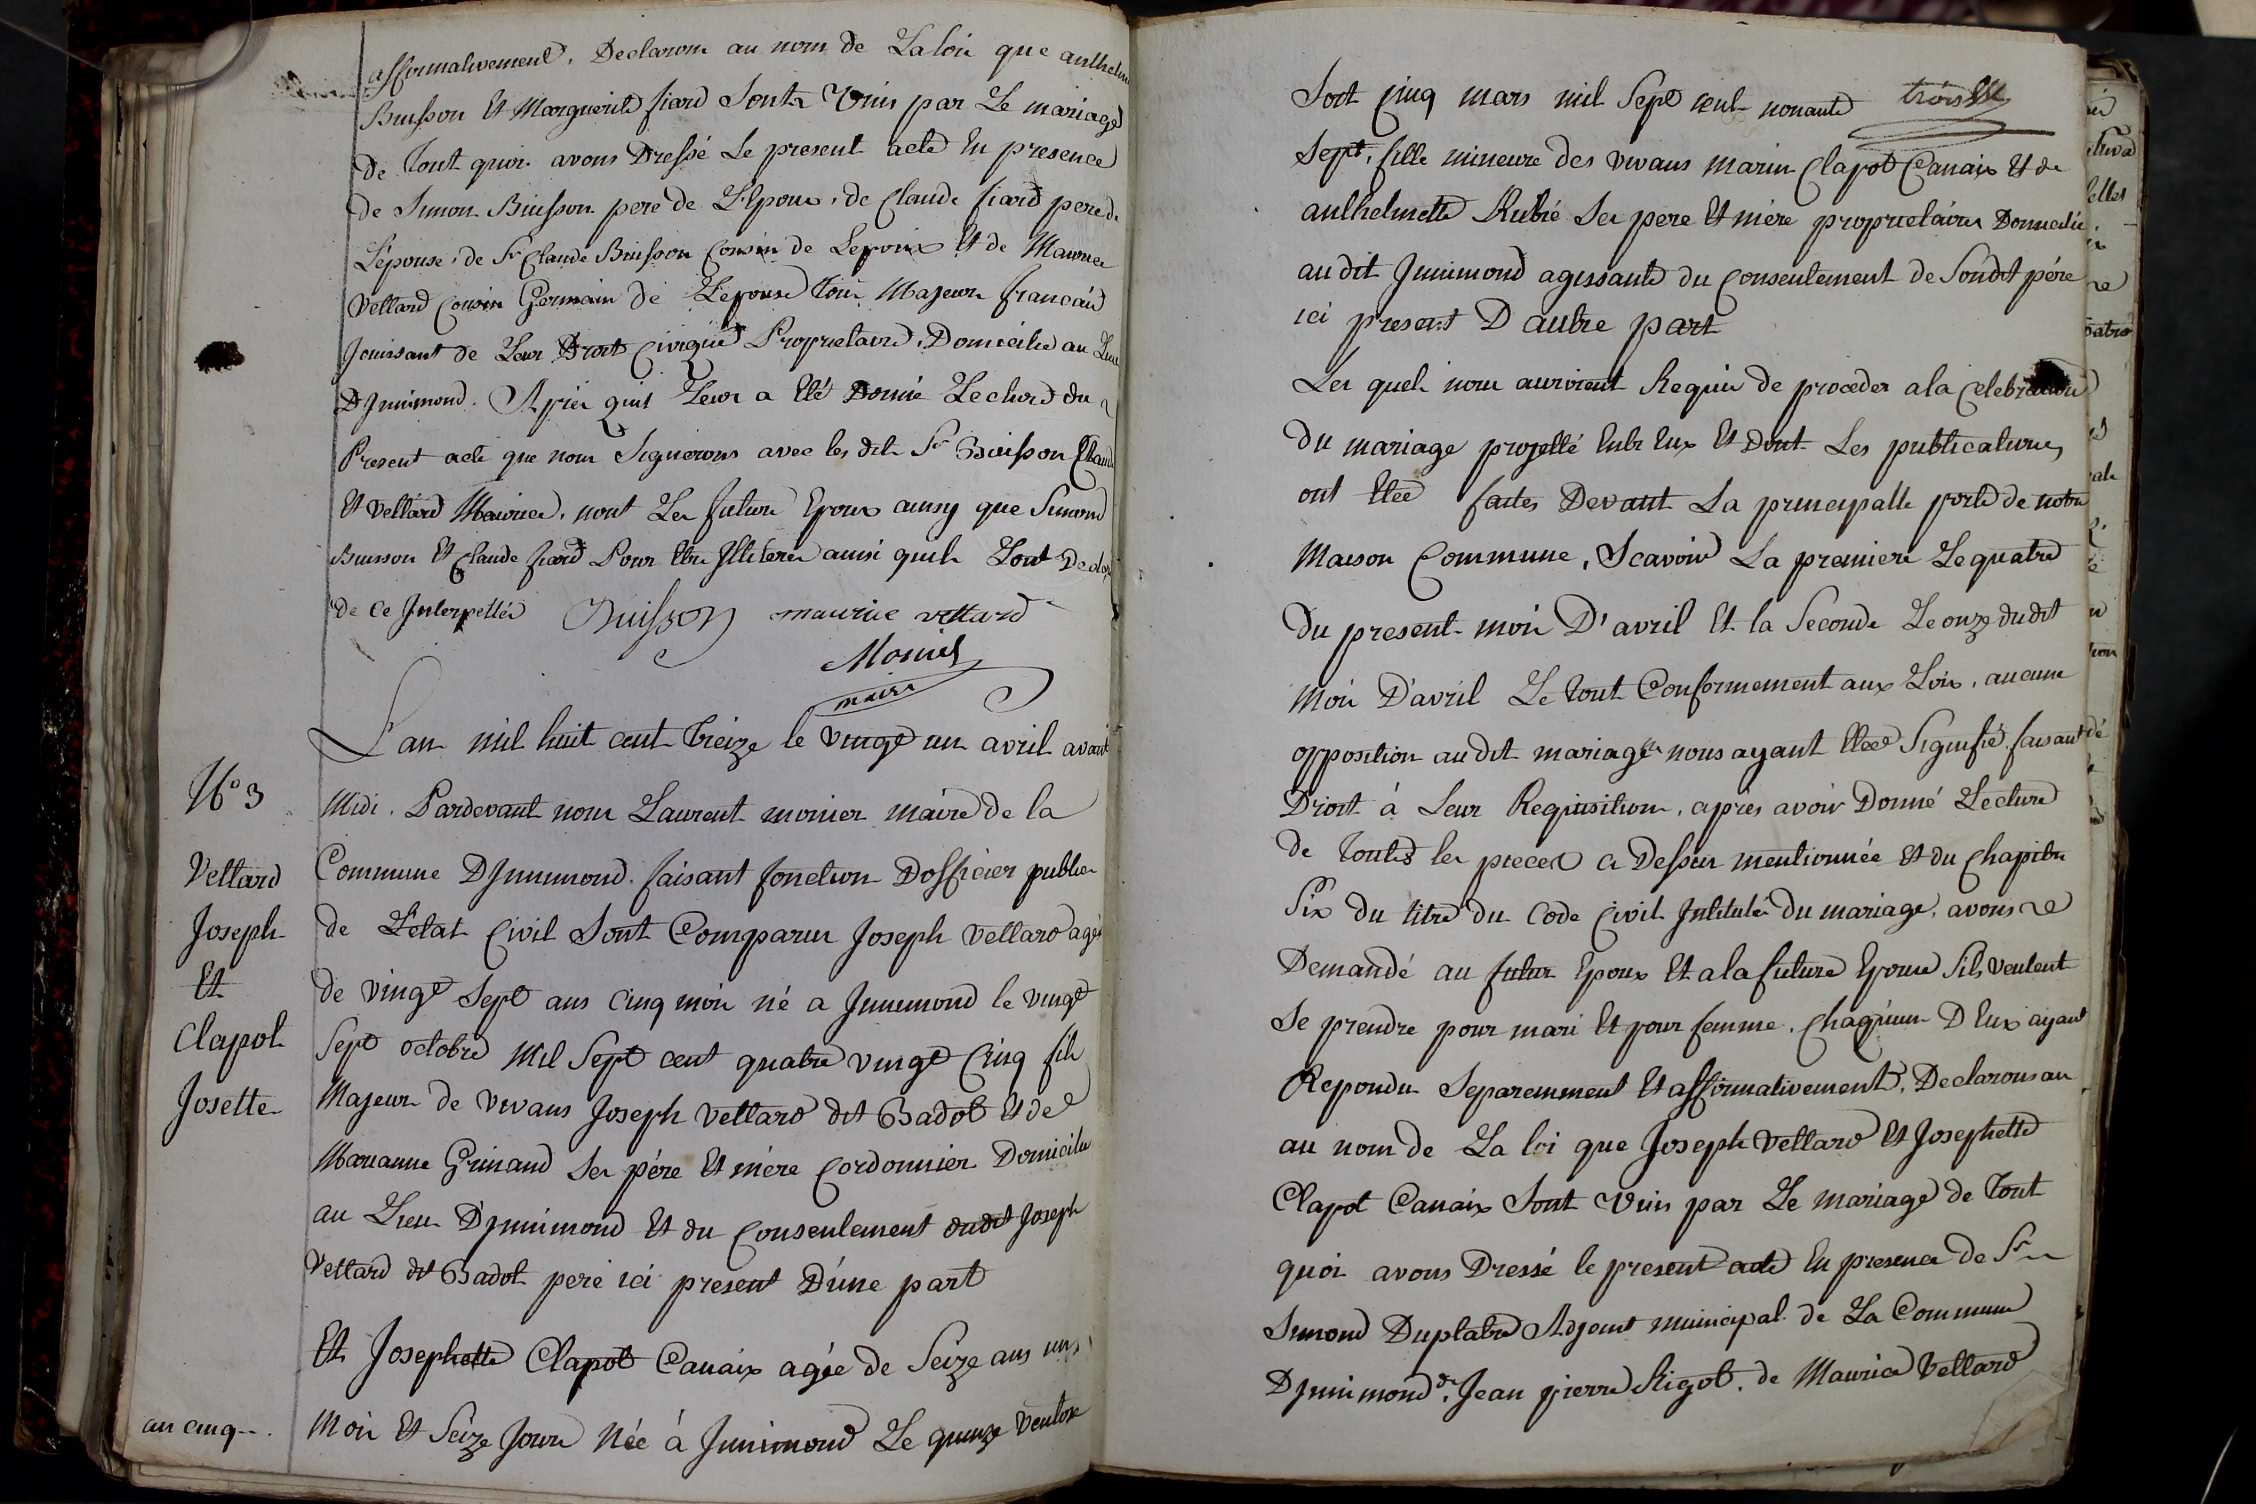 affirmativement, Declarons au nom de La loix que anthelme
Buisson Et Marguerite fiard Sont Unis par Le mariage
de Tout quoi avons Dressé Le present acte En presence
de Simon Buisson pere de L'Epoux, de Claude fiard pere de
L'épouse, de Sr Claude Buisson Cousin de Lepoux Et de Maurice
Vettard Cousin Germain de Lepouse Tous Majeurs francais
Jouissant de Leur Droit Civique Proprietaire, Domicilie au Lieu
DJnnimond. Après quil Leur a Eté Donné Lecture du
Present acte que nous Signerons avec les dits Sr Buisson Claude
Et Vettard Maurice, nont Les futurs Epoux ainsy que Simond
Buisson Et Claude fiard Pour Etre Jlliterés ainsi quils Lont Declaré
de Ce Jnterpellés Buisson maurice vettard
Monier
maire
L'an mil huit cent Treize le vingt un avril avant
N° 3
Midi. Pardevant nous Laurent monier maire de la
Vettard
Commune DJnnimond. faisant fonction Dofficier public
Joseph
de L'état Civil Sont Comparus Joseph vettard agé
Et
de vingt Sept ans Cinq mois né a Jnnimond le vingt
Clapot
Sept octobre Mil Sept cent quatre vingt Cinq fils
Josette
Majeur de vivans Joseph vettard dit Badot Et de
Marianne Grinand Ses pére Et mére Cordonnier Domicilié
au Lieu DJnnimond Et du Consentement dudit Joseph
Vettard dit Badot pere ici present D'une part
Et Josephette Clapot Canaix agée de Seize ans un
an cinq
Mois Et Seize Jours Née à Jnnimond Le quinze Ventose
trois
Soit Cinq mars mil Sept cent nonante
Sept, fille mineure des vivans marin Clapot Canaix Et de
anthelmette Rubié Ses pere Et mère proprietaires Domicilié
au dit Jnnimond agissante du Consentement de Sondit pére
ici present D'autre part
Les quels nous auroient Requis de proceder a la Celebration
du mariage projetté Entr Eux Et Dont Les publications
ont Etée faites Devant La principalle porte de notre
Maison Commune, Scavoir La premiere Le quatre
Du present mois D'avril Et la Seconde Le onze dudit
Mois D'avril Le Tout Conformement aux Loix, aucune
opposition audit mariage nous ayant Etée Signifié, faisant
Droit à Leur Requisition, après avoir Donné Lecture
de Toutes les pieces ci Dessus mentionnée Et du Chapitre
Six du titre du Code Civil Jntitulé Du mariage, avons
Demandé au futur Epoux Et a la future Epouse Sils veulent
Se prendre pour mari Et pour femme, Chaquun D'Eux ayant
Repondu Separemment Et affirmativement, Declarons au
au nom de La loi que Joseph Vettard Et Josephette
Clapot Canaix Sont Unis par Le mariage de Tout
quoi avons Dressé le present acte En presence de Sr
Simond Duplatre Adjoint municipal de La Commune
DJnnimond, de Jean pierre Rigot, de Maurice Vettard